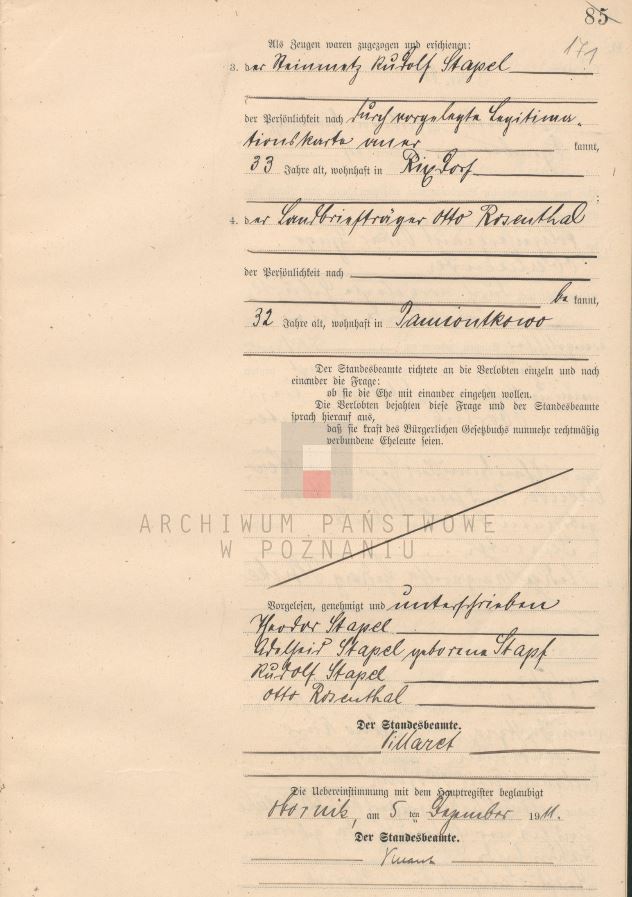 85
171
Als Zeugen waren zugezogen und erschienen:
3. der Steinmetz Rudolf Stapel
der Persönlichkeit nach durch vorgelegte Legitima-
tionskarte aner kannt,
33 Jahre alt, wohnhaft in Rixdorf
4. der Landbriefträger Otto Rosenthal
der Persönlichkeit nach
be kannt,
32 Jahre alt, wohnhaft in Pamiontkowo
Der Standesbeamte richtete an die Verlobten einzeln und nach
einander die Frage:
ob sie die Ehe mit einander eingehen wollen.
Die Verlobten bejahten diese Frage und der Standesbeamte
sprach hierauf aus,
daß sie kraft des Bürgerlichen Gesetzbuchs nunmehr rechtmäßig
verbundene Eheleute seien.
ARCHIWUM PAŃSTWOWE
W POZNANIU
Vorgelesen, genehmigt und unterschrieben
Theodor Stapel
Adelheid Stapel geborene Stapf
Rudolf Stapel
Otto Rosenthal
Der Standesbeamte.
Villaret
Die Uebereinstimmung mit dem Hauptregister beglaubigt
Obornik, am 5 ten Dezember 1911.
Der Standesbeamte.